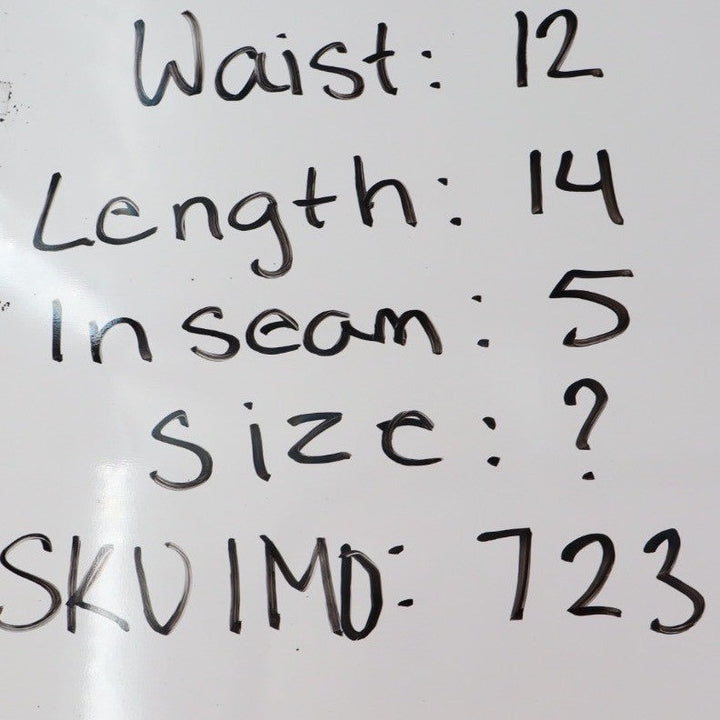 Waist: 12
Length: 14
In seam: 5
Size: ?
SKU IMD: 723